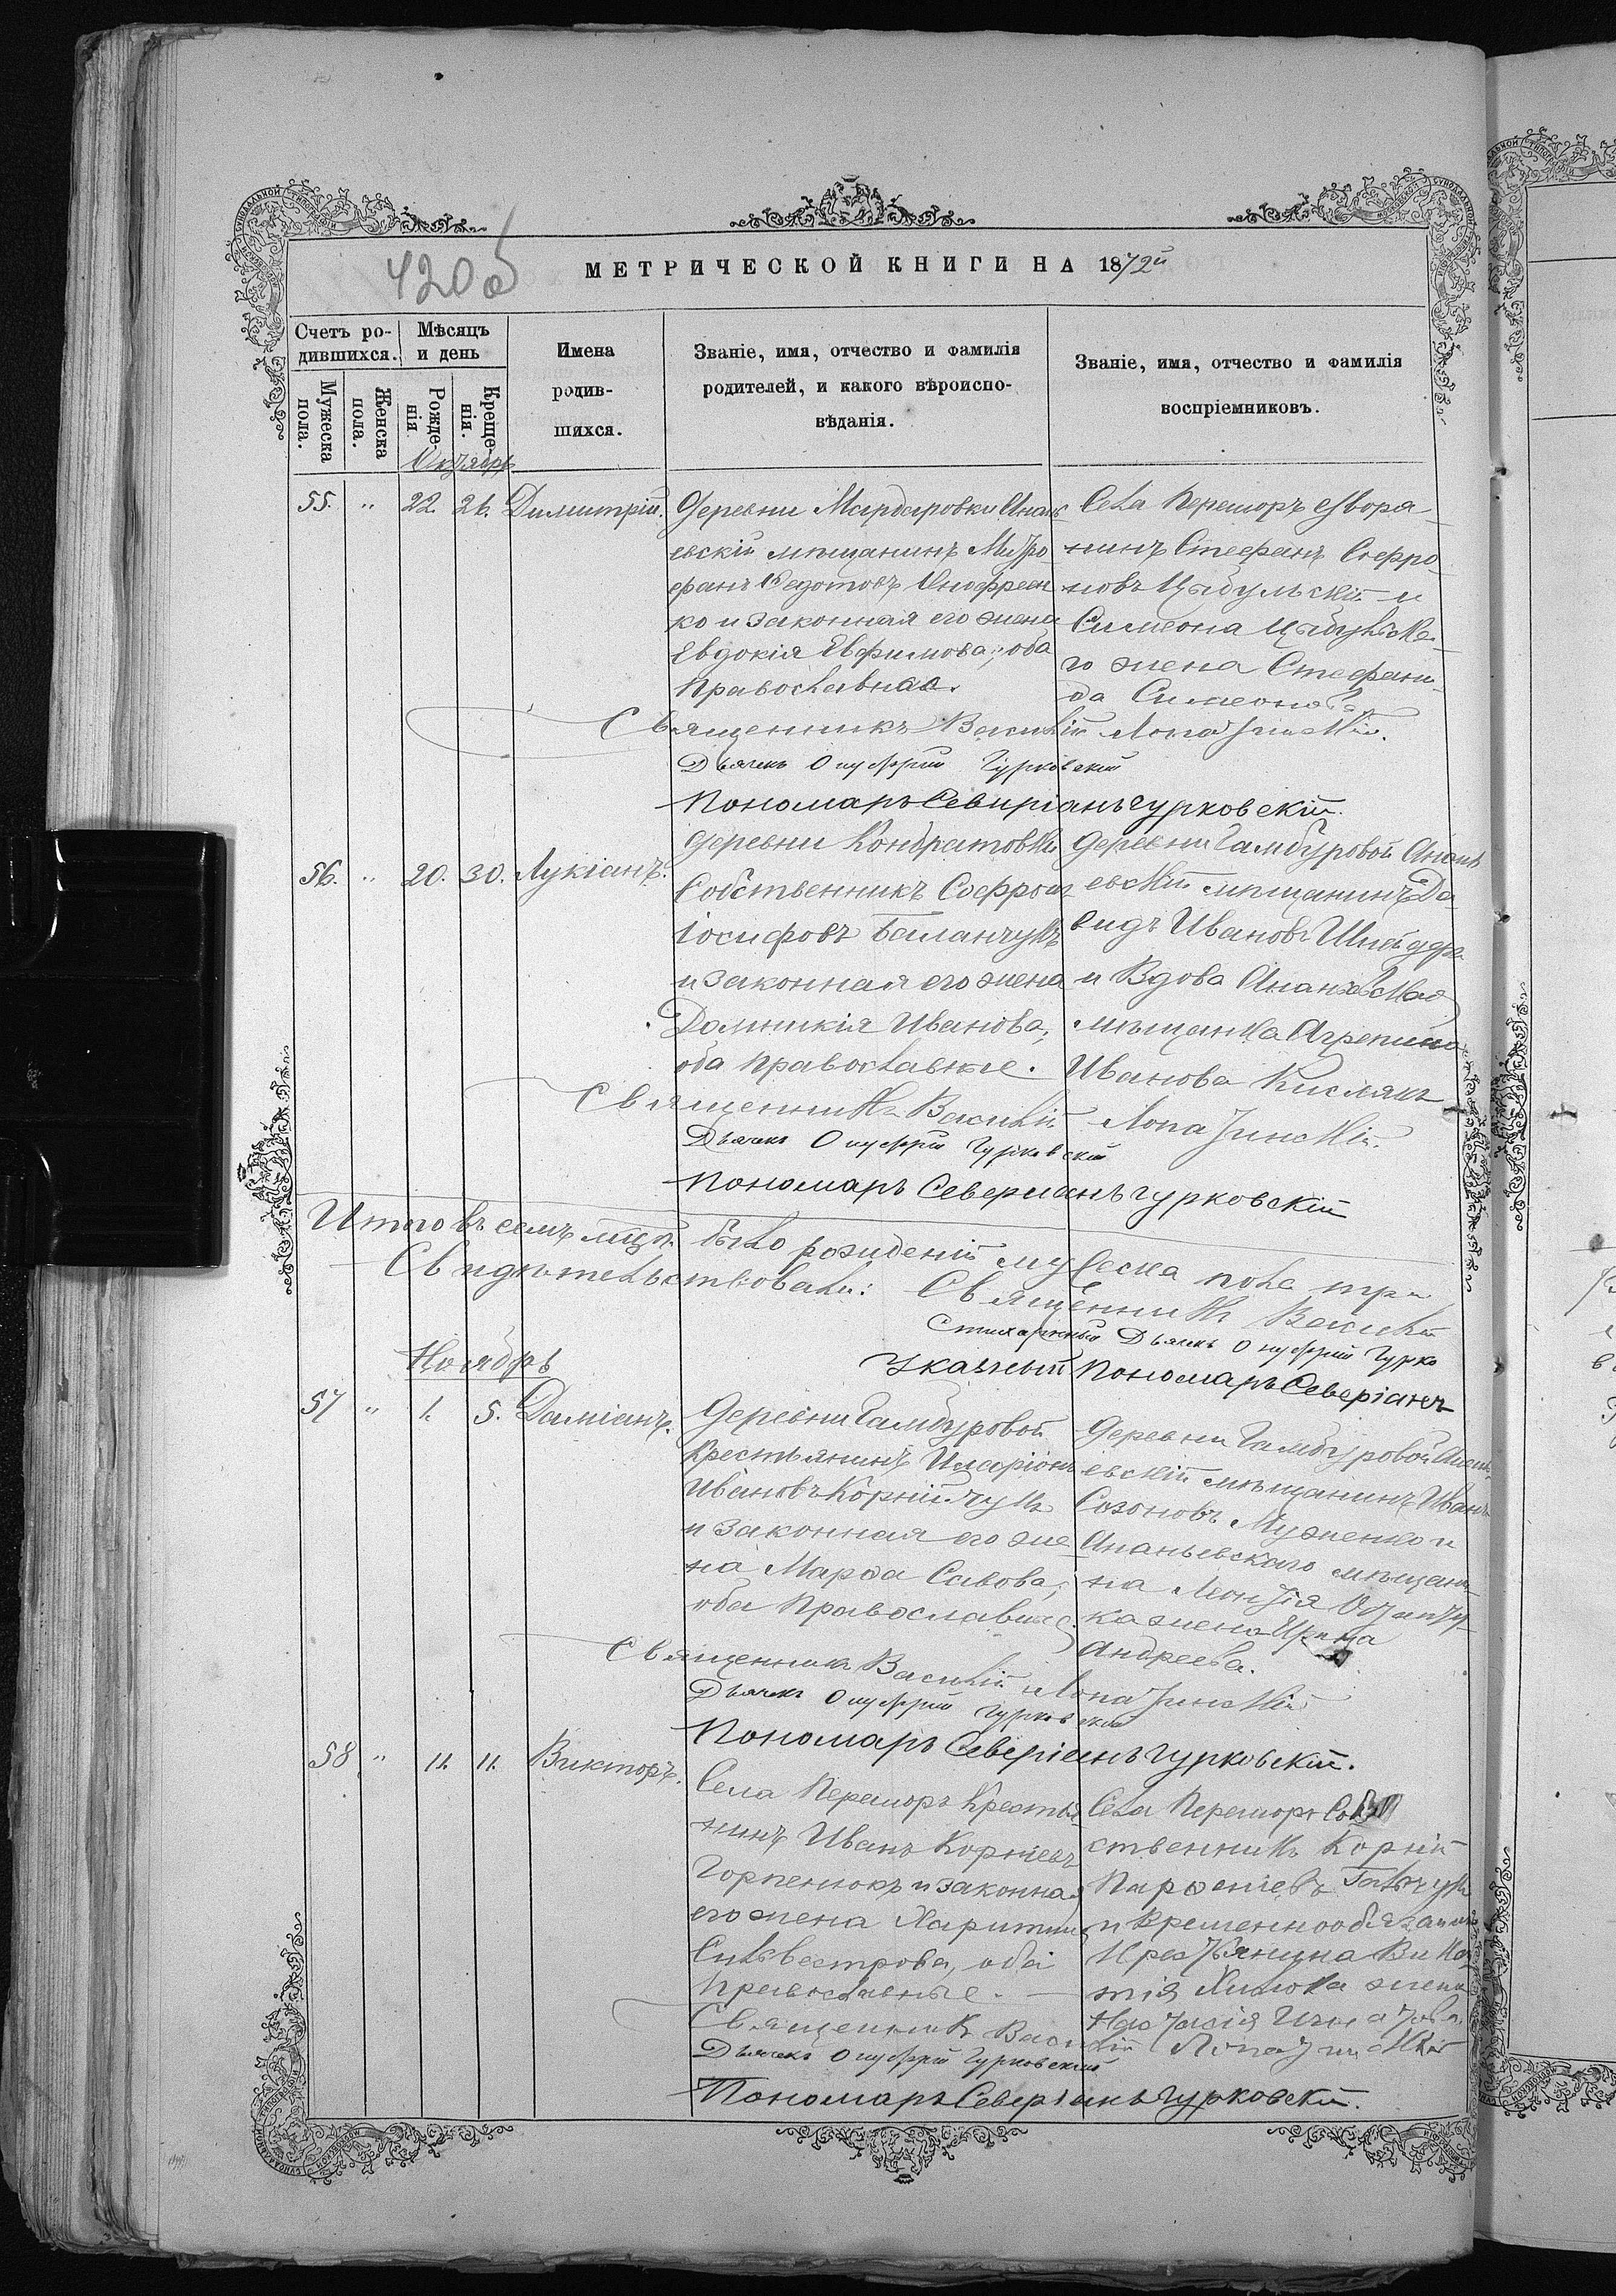 420 об
МЕТРИЧЕСКОЙ КНИГИ НА 1872й
Счетъ родившихся.
Мѣсяцъ и день
Имена родившихся.
Званіе, имя, отчество и фамилія родителей, и какого вѣроисповѣданія.
Званіе, имя, отчество и фамилія воспріемниковъ.
Мужеска пола.
Женска пола.
Рожденія
Крещенія.
Октябрь
55. " 22. 26. Димитрій.
Деревни Мардаровки Анань
евскій мѣщанинъ Митро
фанъ Федотовъ Онофреен
ко и законная его жена
Евдокія Евфимова; оба
православная.
Села Перешоръ дворя
нинъ Стефанъ Софро
новъ Цыбульскій и
Симеона Цыбульска
го жена Стефани
да Симеонова
Священникъ Василій Лопатинскій.
Дьячекъ Онуфрій Гурковскій
Пономарь Северіанъ Гурковскій.
56. " 20. 30. Лукіанъ.
Деревни Кондратовки
Собственникъ Софрон
Іосифовъ Баланчукъ
и законная его жена
Домникія Иванова;
оба православные.
Деревни Гамбуровой Анань
евскій мѣщанинъ Да
видъ Ивановъ
и Вдова Ананьевская
мѣщанка Агрепина
Иванова Кислякъ
Священникъ Василій Лопатинскій.
Дьячекъ Онуфрій Гурковскій
Пономарь Северианъ Гурковскій
Итого въ семъ мцѣ было рожденій мужеска пола три
Свидѣтельствовали: Священникъ Василій
Стихарный Дьячекъ Онуфрій Гурко
Указный Пономарь Северіанъ
Ноябрь
57 " 1. 5. Даміанъ.
Деревни Гамбуровой
Крестьянинъ Иларіонъ
Ивановъ Корнійчукъ
и законная его же
на Марѳа Савова;
оба Православные.
Деревни Гамбуровой Анань
евскій мѣщанинъ Иванъ
Созоновъ Муженко и
Ананьевскаго мѣщани
на Леонтія
ка жена Ирина
Андреева.
Священникъ Василій Лопатинскій
Дьячекъ Онуфрій Гурковскій
Пономарь Северіанъ Гурковскій.
58 " 11. 11. Викторъ.
Села Перешоръ Крестья
нинъ Иванъ Корніевъ
Горпенюкъ и законная
его жена Харитина
Сильвестрова, оба
православные.
Села Перешоръ Соб
ственникъ Корній
Парѳеніевъ
и временнообязаннаго
Крестьянина Викен
тія жена
Настасія Игнатова.
Священникъ Василій Лопатинскій
Дьячекъ Онуфрій Гурковскій
Пономарь Северіанъ Гурковскій.